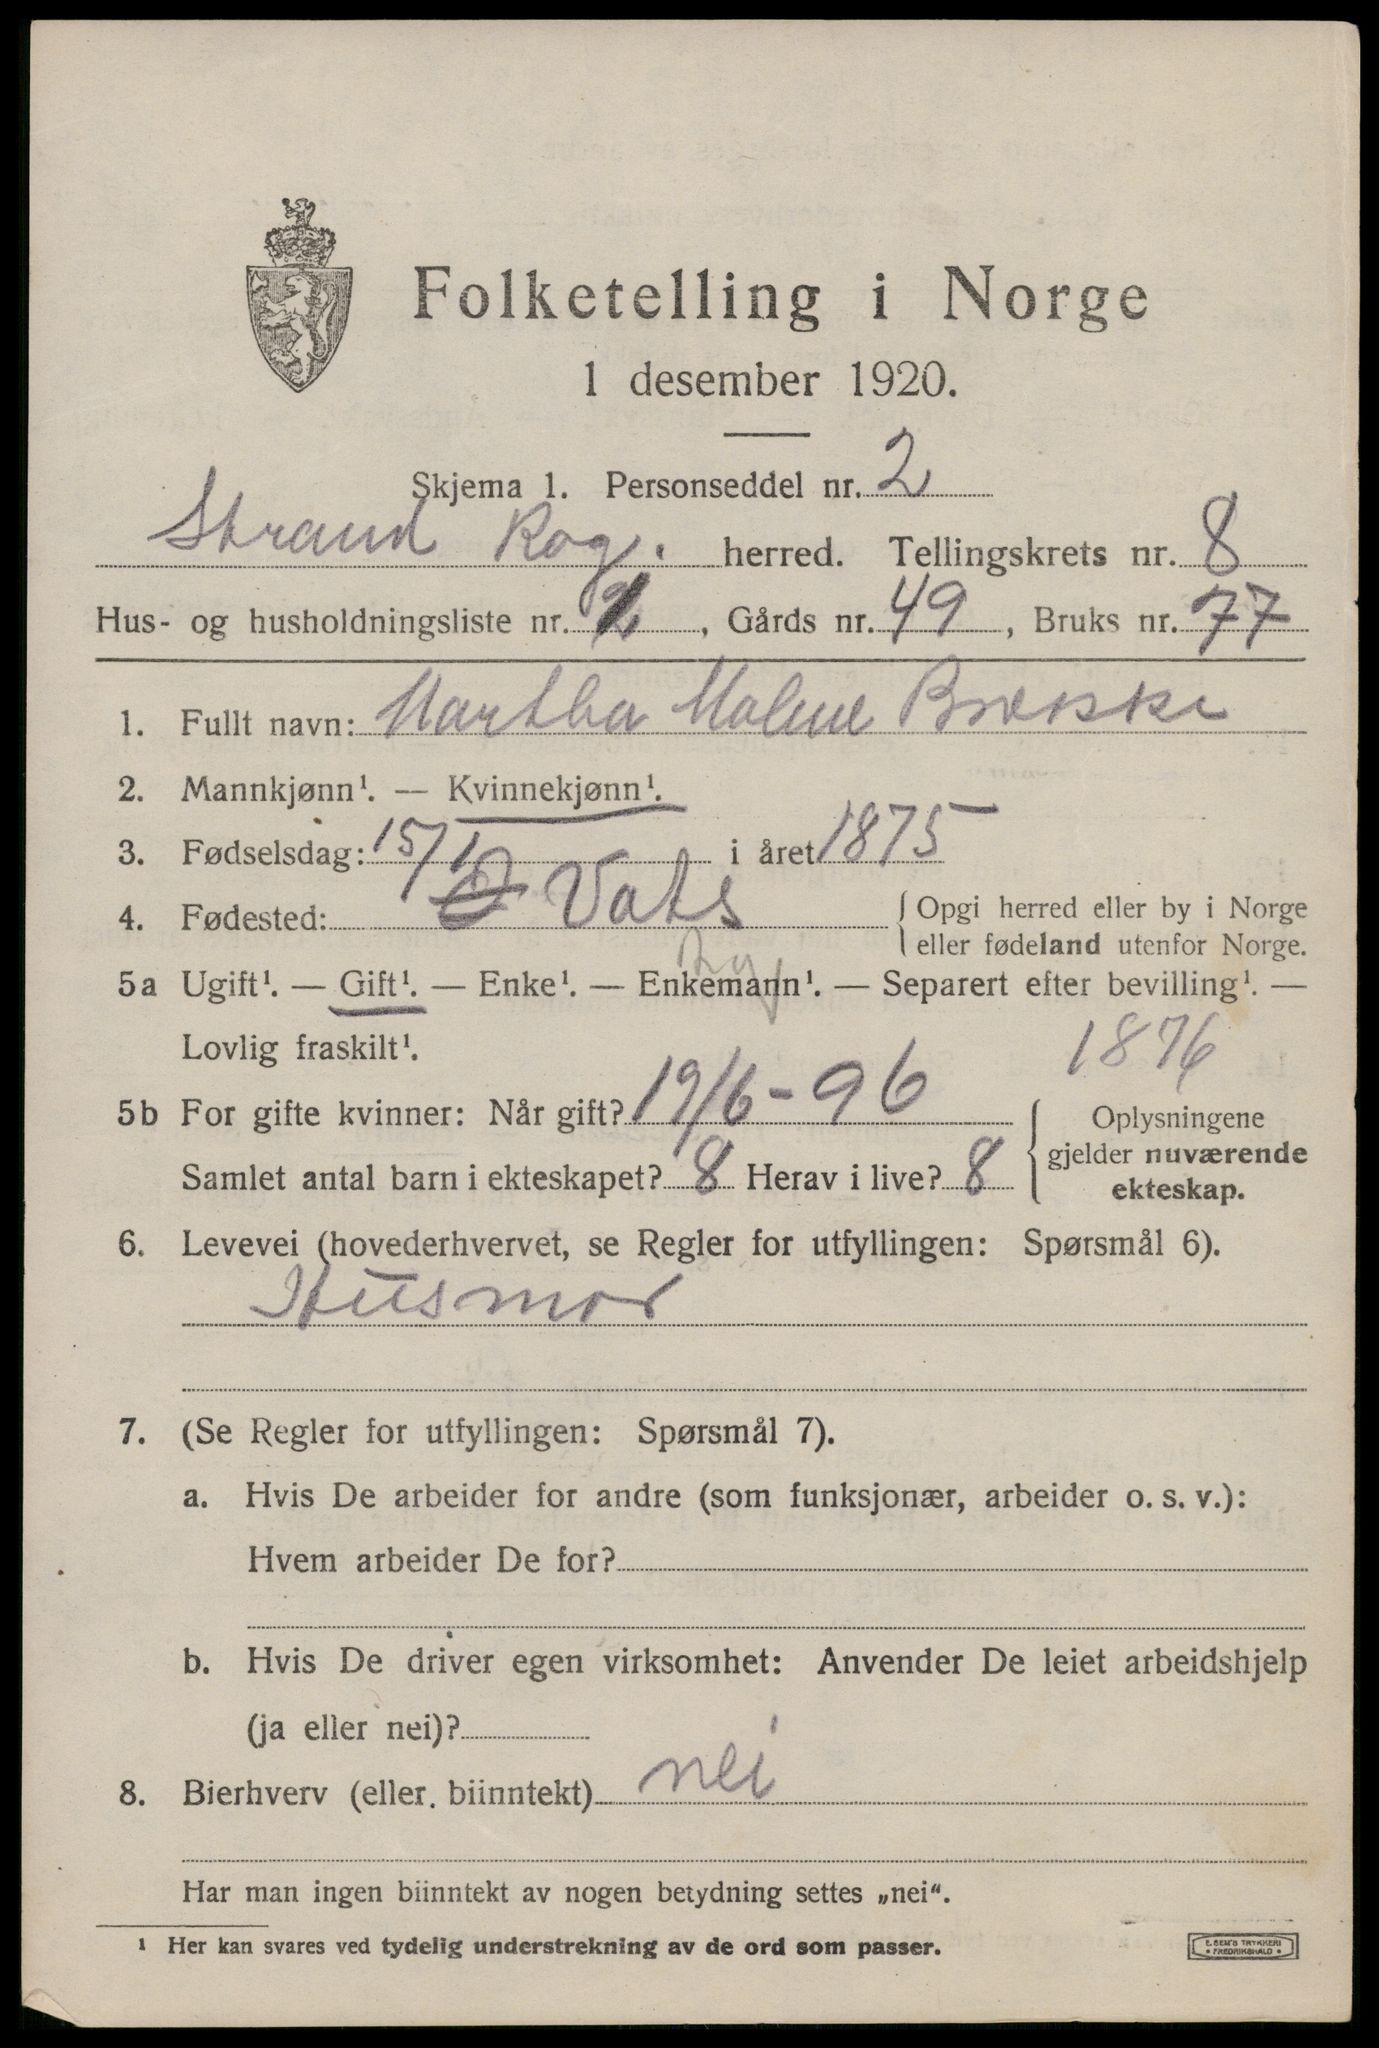 Folketelling i Norge
1 desember 1920.
Skjema 1. Personseddel nr. 2
Strand Rog. herred. Tellingskrets nr. 8
Hus- og husholdningsliste nr. 2, Gårds nr. 49, Bruks nr. 77
1. Fullt navn: Martha Malene Brekke
2. Mannkjønn¹. — Kvinnekjønn¹.
3. Fødselsdag: 15/1 i året 1875
4. Fødested: Vats { Opgi herred eller by i Norge
eller fødeland utenfor Norge.
5a Ugift¹. — Gift¹. — Enke¹. — Enkemann¹. — Separert efter bevilling¹. —
Lovlig fraskilt¹.
1876
5b For gifte kvinner: Når gift? 19/6-96
Samlet antal barn i ekteskapet? 8 Herav i live? 8
{ Oplysningene
gjelder nuværende
ekteskap.
6. Levevei (hovederhvervet, se Regler for utfyllingen: Spørsmål 6).
Husmor
7. (Se Regler for utfyllingen: Spørsmål 7).
a. Hvis De arbeider for andre (som funksjonær, arbeider o. s. v.):
Hvem arbeider De for?
b. Hvis De driver egen virksomhet: Anvender De leiet arbeidshjelp
(ja eller nei)?
8. Bierhverv (eller. biinntekt) nei
Har man ingen biinntekt av nogen betydning settes „nei“.
¹ Her kan svares ved tydelig understrekning av de ord som passer.
E. SEM'S TRYKKERI
• FREDRIKSHALD •